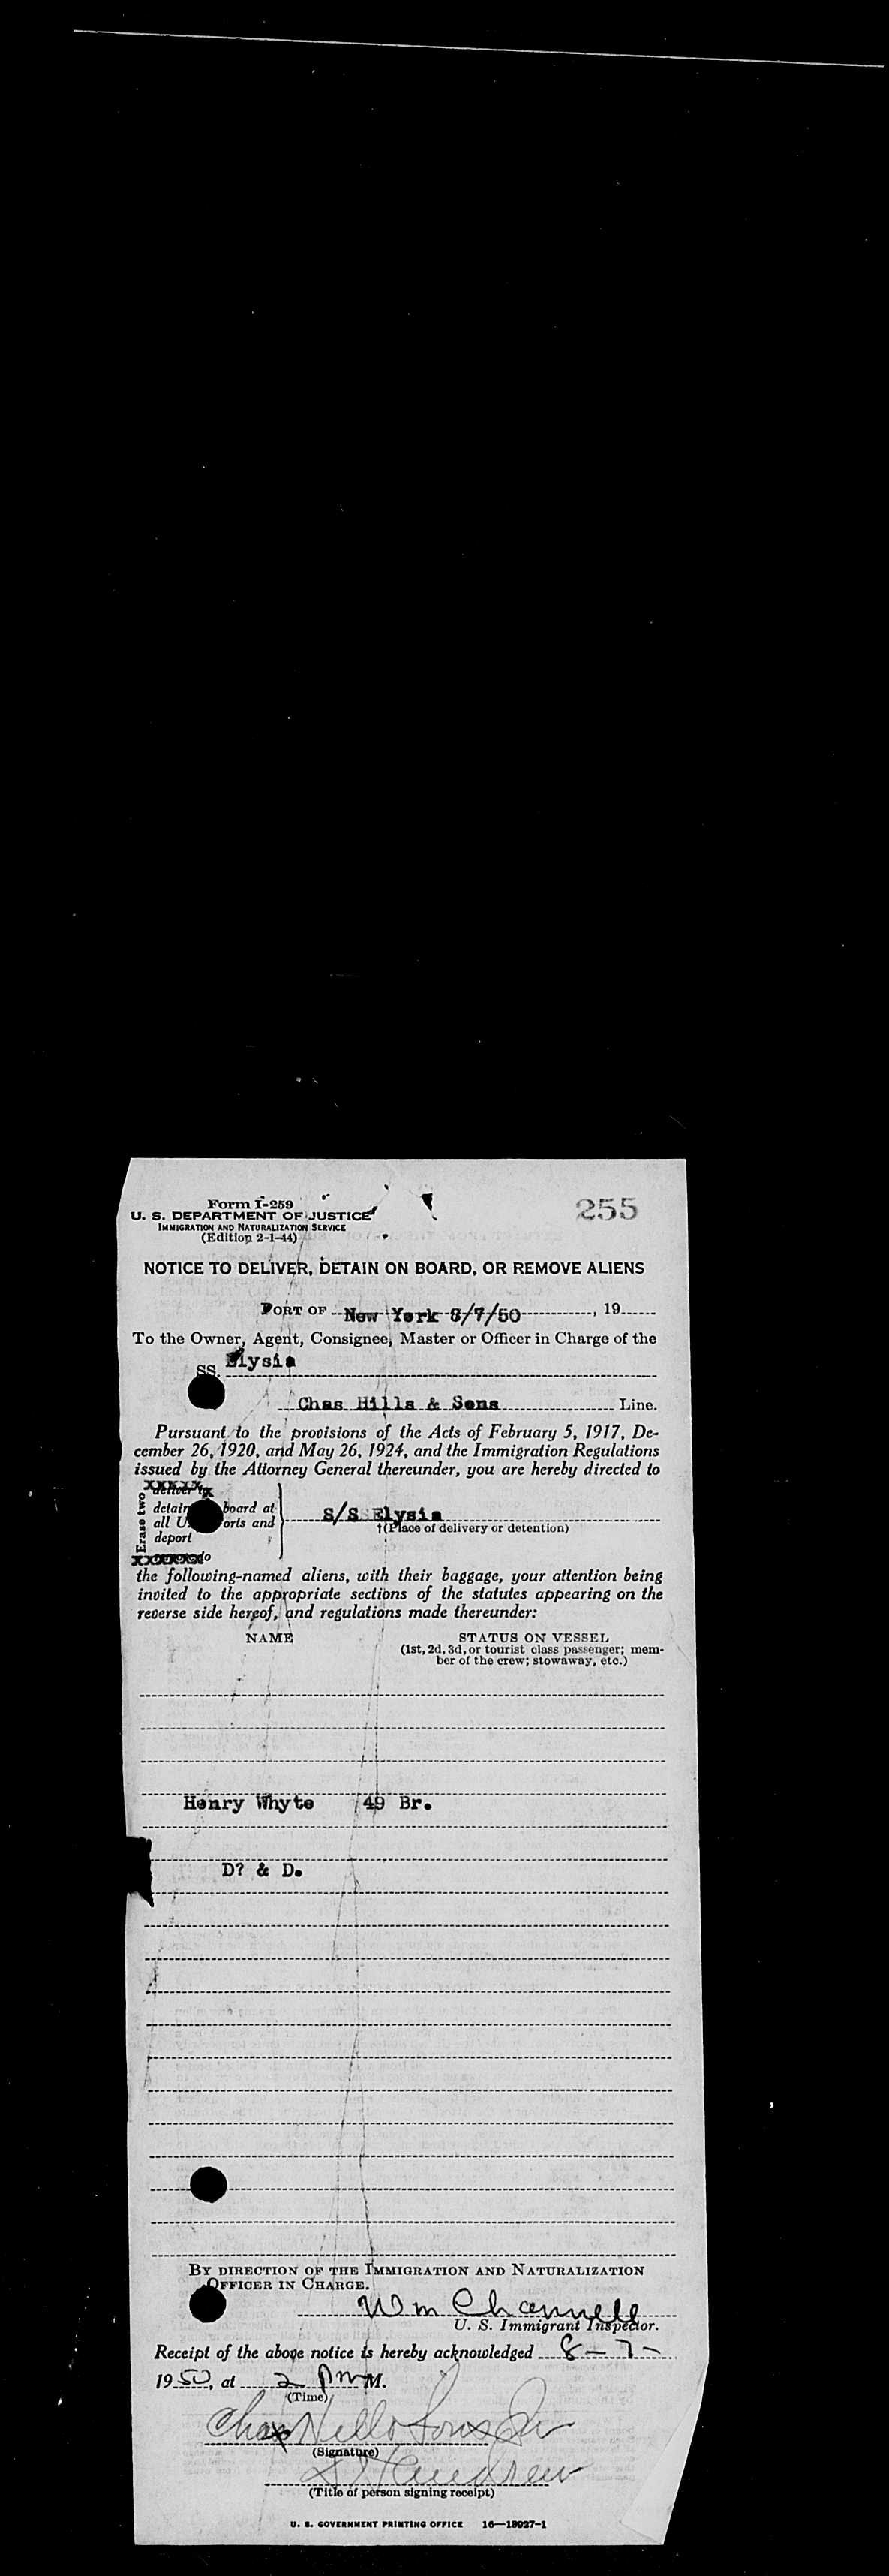 Form I-259
255
U. S. DEPARTMENT OF JUSTICE
IMMIGRATION AND NATURALIZATION SERVICE
(Edition 2-1-44)
NOTICE TO DELIVER, DETAIN ON BOARD, OR REMOVE ALIENS
PORT OF New York 8/7/50, 19
To the Owner, Agent, Consignee, Master or Officer in Charge of the
SS. Elysia
Chas Hills & Sons Line.
Pursuant to the provisions of the Acts of February 5, 1917, De-
cember 26, 1920, and May 26, 1924, and the Immigration Regulations
issued by the Attorney General thereunder, you are hereby directed to
Erase two
deliver
detain board at
all U orts and
deport
S/S Elysia
†(Place of delivery or detention)
the following-named aliens, with their baggage, your attention being
invited to the appropriate sections of the statutes appearing on the
reverse side hereof, and regulations made thereunder:
NAME STATUS ON VESSEL
(1st, 2d, 3d, or tourist class passenger; mem-
ber of the crew; stowaway, etc.)
Henry Whyte 49 Br.
D? & D.
BY DIRECTION OF THE IMMIGRATION AND NATURALIZATION
OFFICER IN CHARGE.
Wm Channell
U. S. Immigrant Inspector.
Receipt of the above notice is hereby acknowledged 8-7-
1950, at 2 pm M.
(Time)
Chas Hills Sons
(Signature)
(Title of person signing receipt)
U. S. GOVERNMENT PRINTING OFFICE 16—18927-1